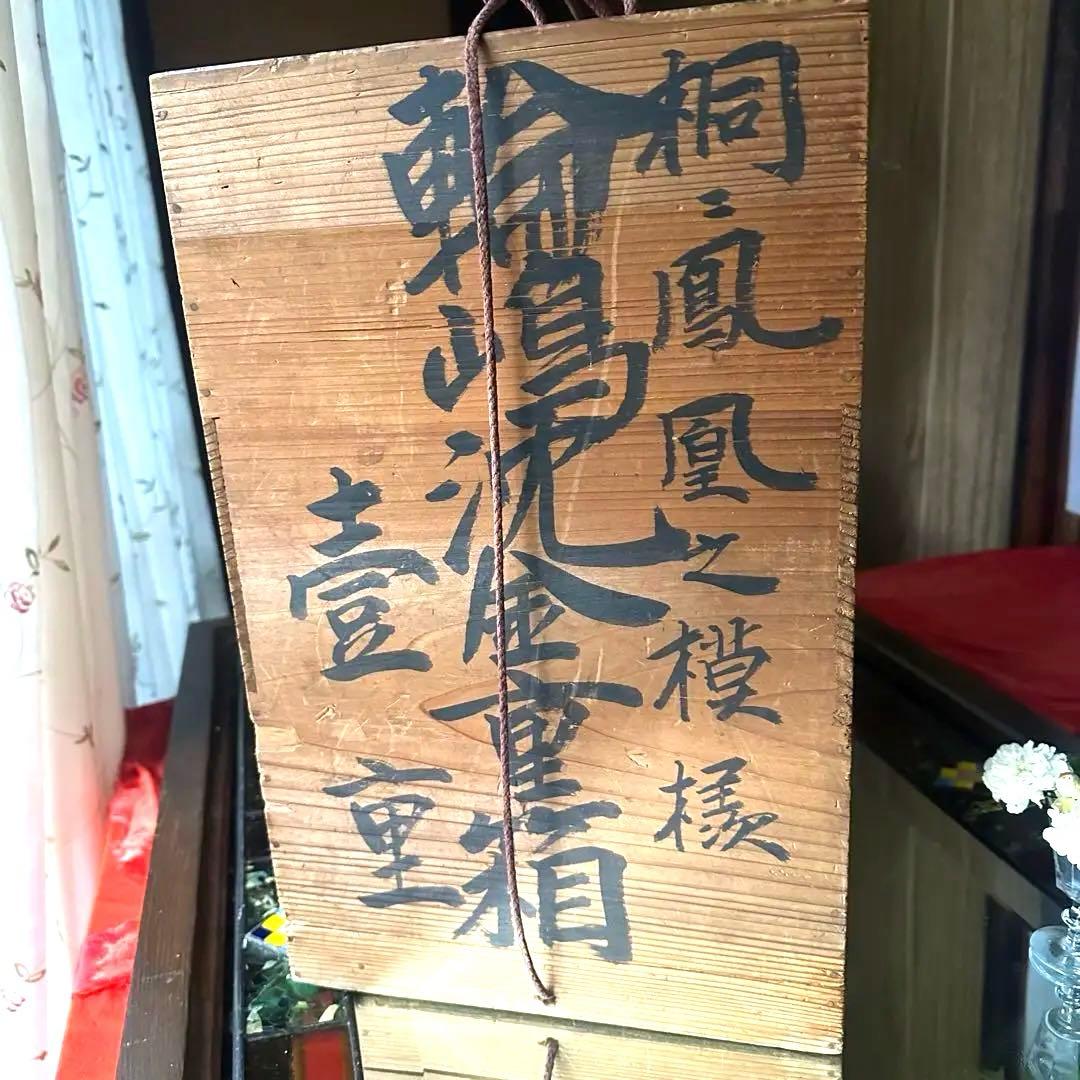 桐ニ鳳凰之模様
輪嶋沈金重箱
壹重